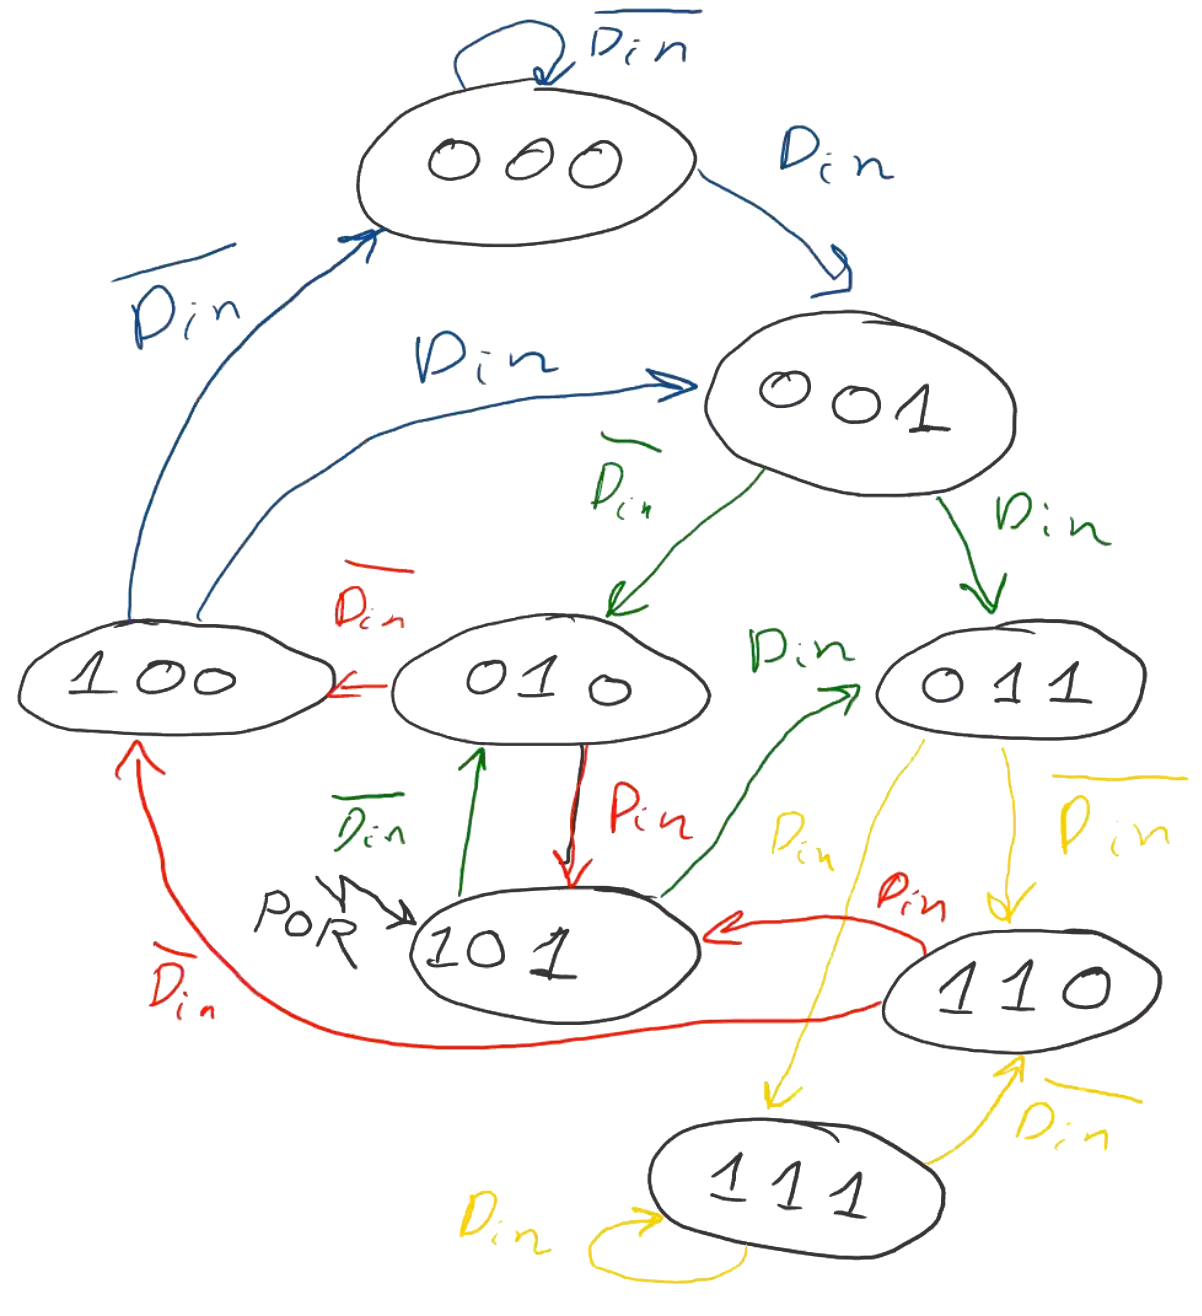 D̅i̅n̅
000
Din
D̅i̅n̅
Din
001
D̅i̅n̅
Din
D̅i̅n̅
100
010
Din
011
D̅i̅n̅
Din
Din
D̅i̅n̅
POR
101
Din
D̅i̅n̅
110
D̅i̅n̅
111
Din